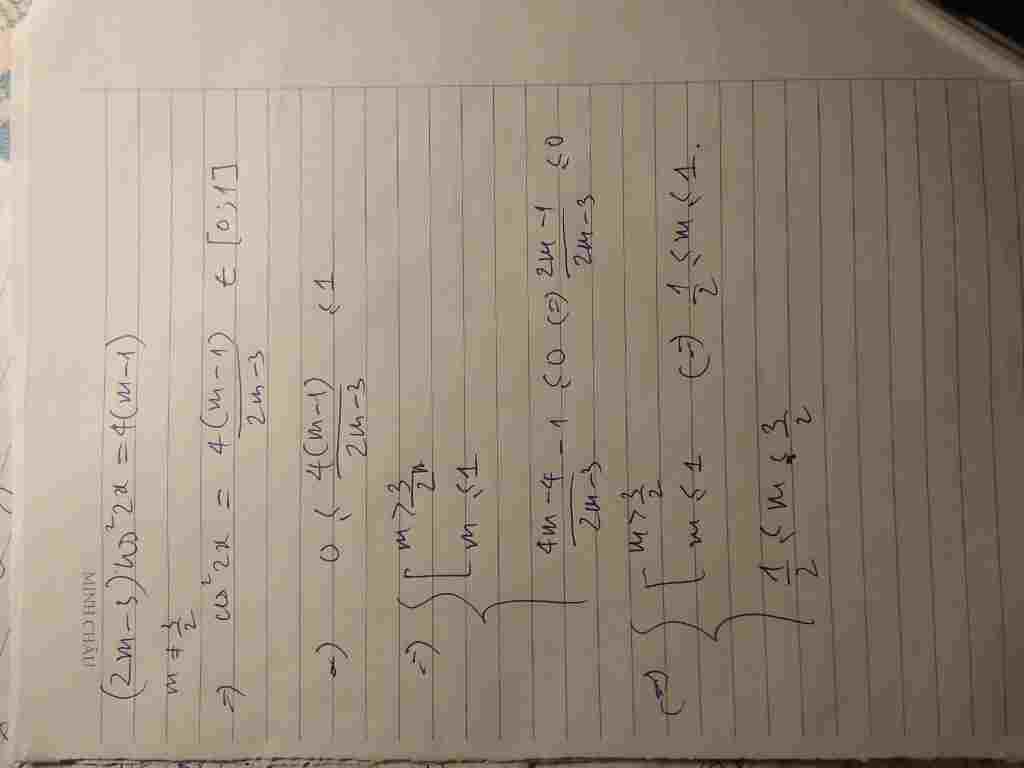 MINH CHÂU
(2m-3) cos²2x = 4(m-1)
m ≠ 3/2
=> cos²2x = 4(m-1)/(2m-3) ∈ [0;1]
=> 0 ≤ 4(m-1)/(2m-3) ≤ 1
=> { [ m > 3/2
m ≤ 1
(4m-4)/(2m-3) - 1 ≤ 0 (=) (2m-1)/(2m-3) ≤ 0
(=) { [ m > 3/2
m ≤ 1 (=) 1/2 ≤ m ≤ 1.
1/2 ≤ m ≤ 3/2